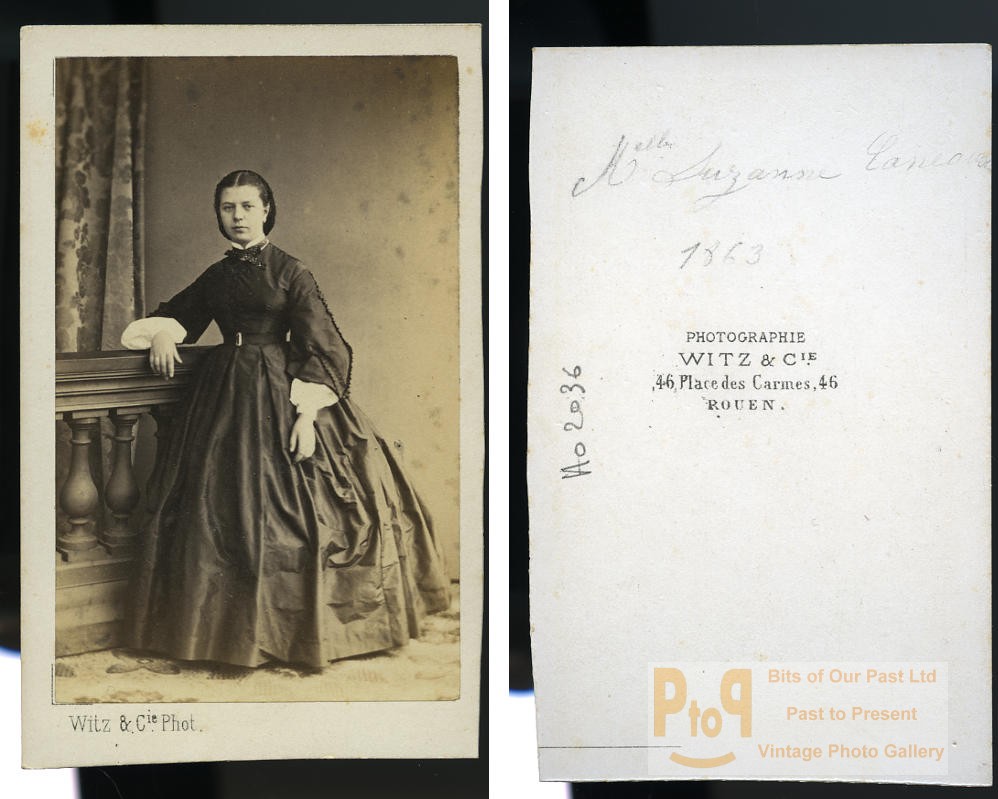 Witz & Cie Phot.
Melle Suzanne
1863
PHOTOGRAPHIE
WITZ & CIE
46, Place des Carmes, 46
ROUEN.
No 2036
PtoP
Bits of Our Past Ltd
Past to Present
Vintage Photo Gallery